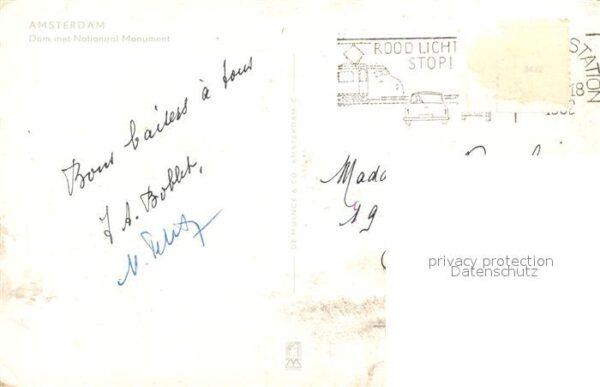 AMSTERDAM
Dam met Nationaal Monument
ROOD LICHT
STOP!
STATION
18
Bons baisers à tous
A. Boblet,
M.
DE MUINCK & CO. AMSTERDAM-C
Mada
19
privacy protection
Datenschutz